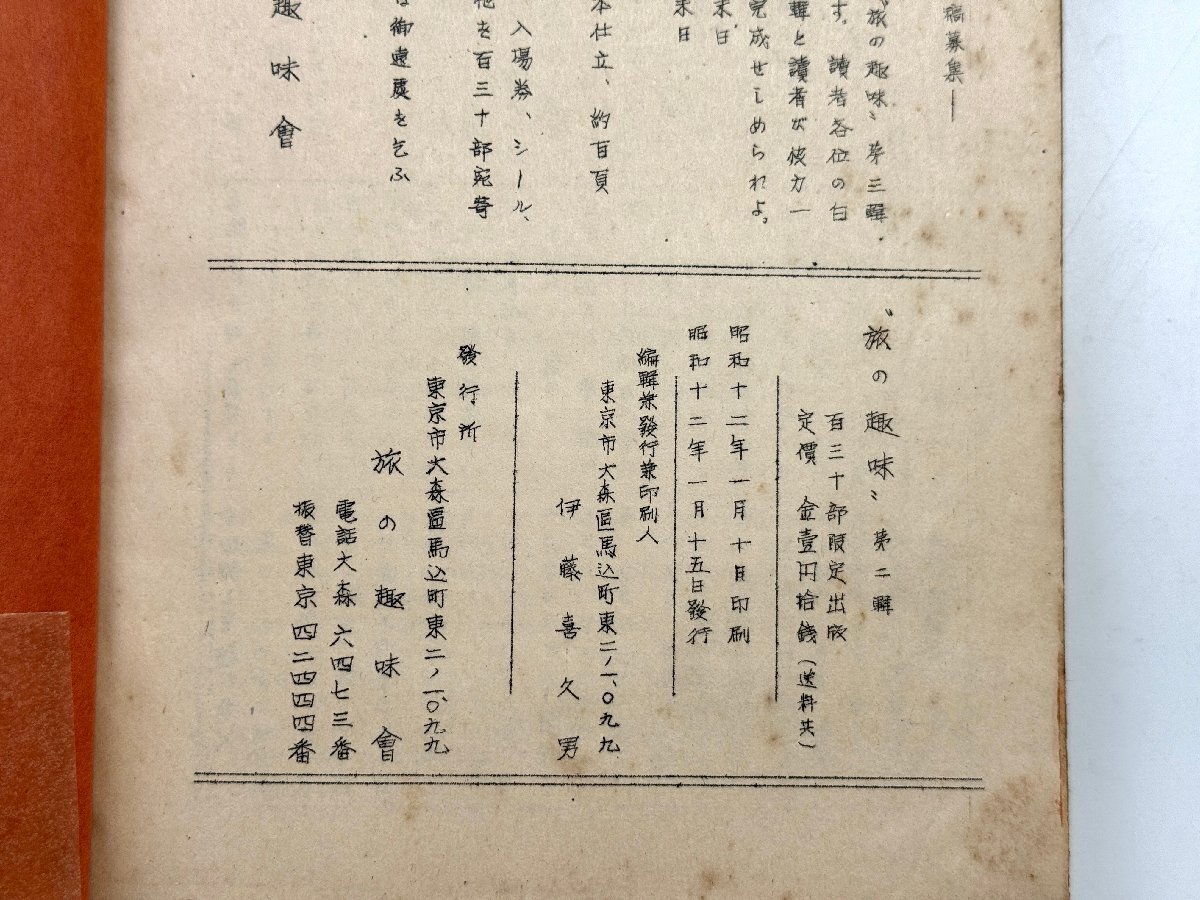 稿募集―
〝旅の趣味〟第三輯
す。讀者各位の白
輯と讀者が彼力一
完成せしめられよ。
末日
末日
本仕立、約百頁
入場券、シール、
他を百三十部宛寄
は御遠慮を乞ふ
趣味會
〝旅の趣味〟第二輯
百三十部限定出版
定價　金壹円拾銭(送料共)
昭和十二年一月十日印刷
昭和十二年一月十五日發行
編輯兼發行兼印刷人
東京市大森區馬込町東二ノ一、〇九九
伊藤喜久男
發行所
東京市大森區馬込町東二ノ一、〇九九
旅の趣味會
電話大森六四七三番
振替東京四二四四四番